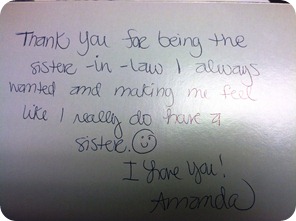 Thank you for being the
sister-in-law I always
wanted and making me feel
like I really do have a
sister.
I love you!
Amanda